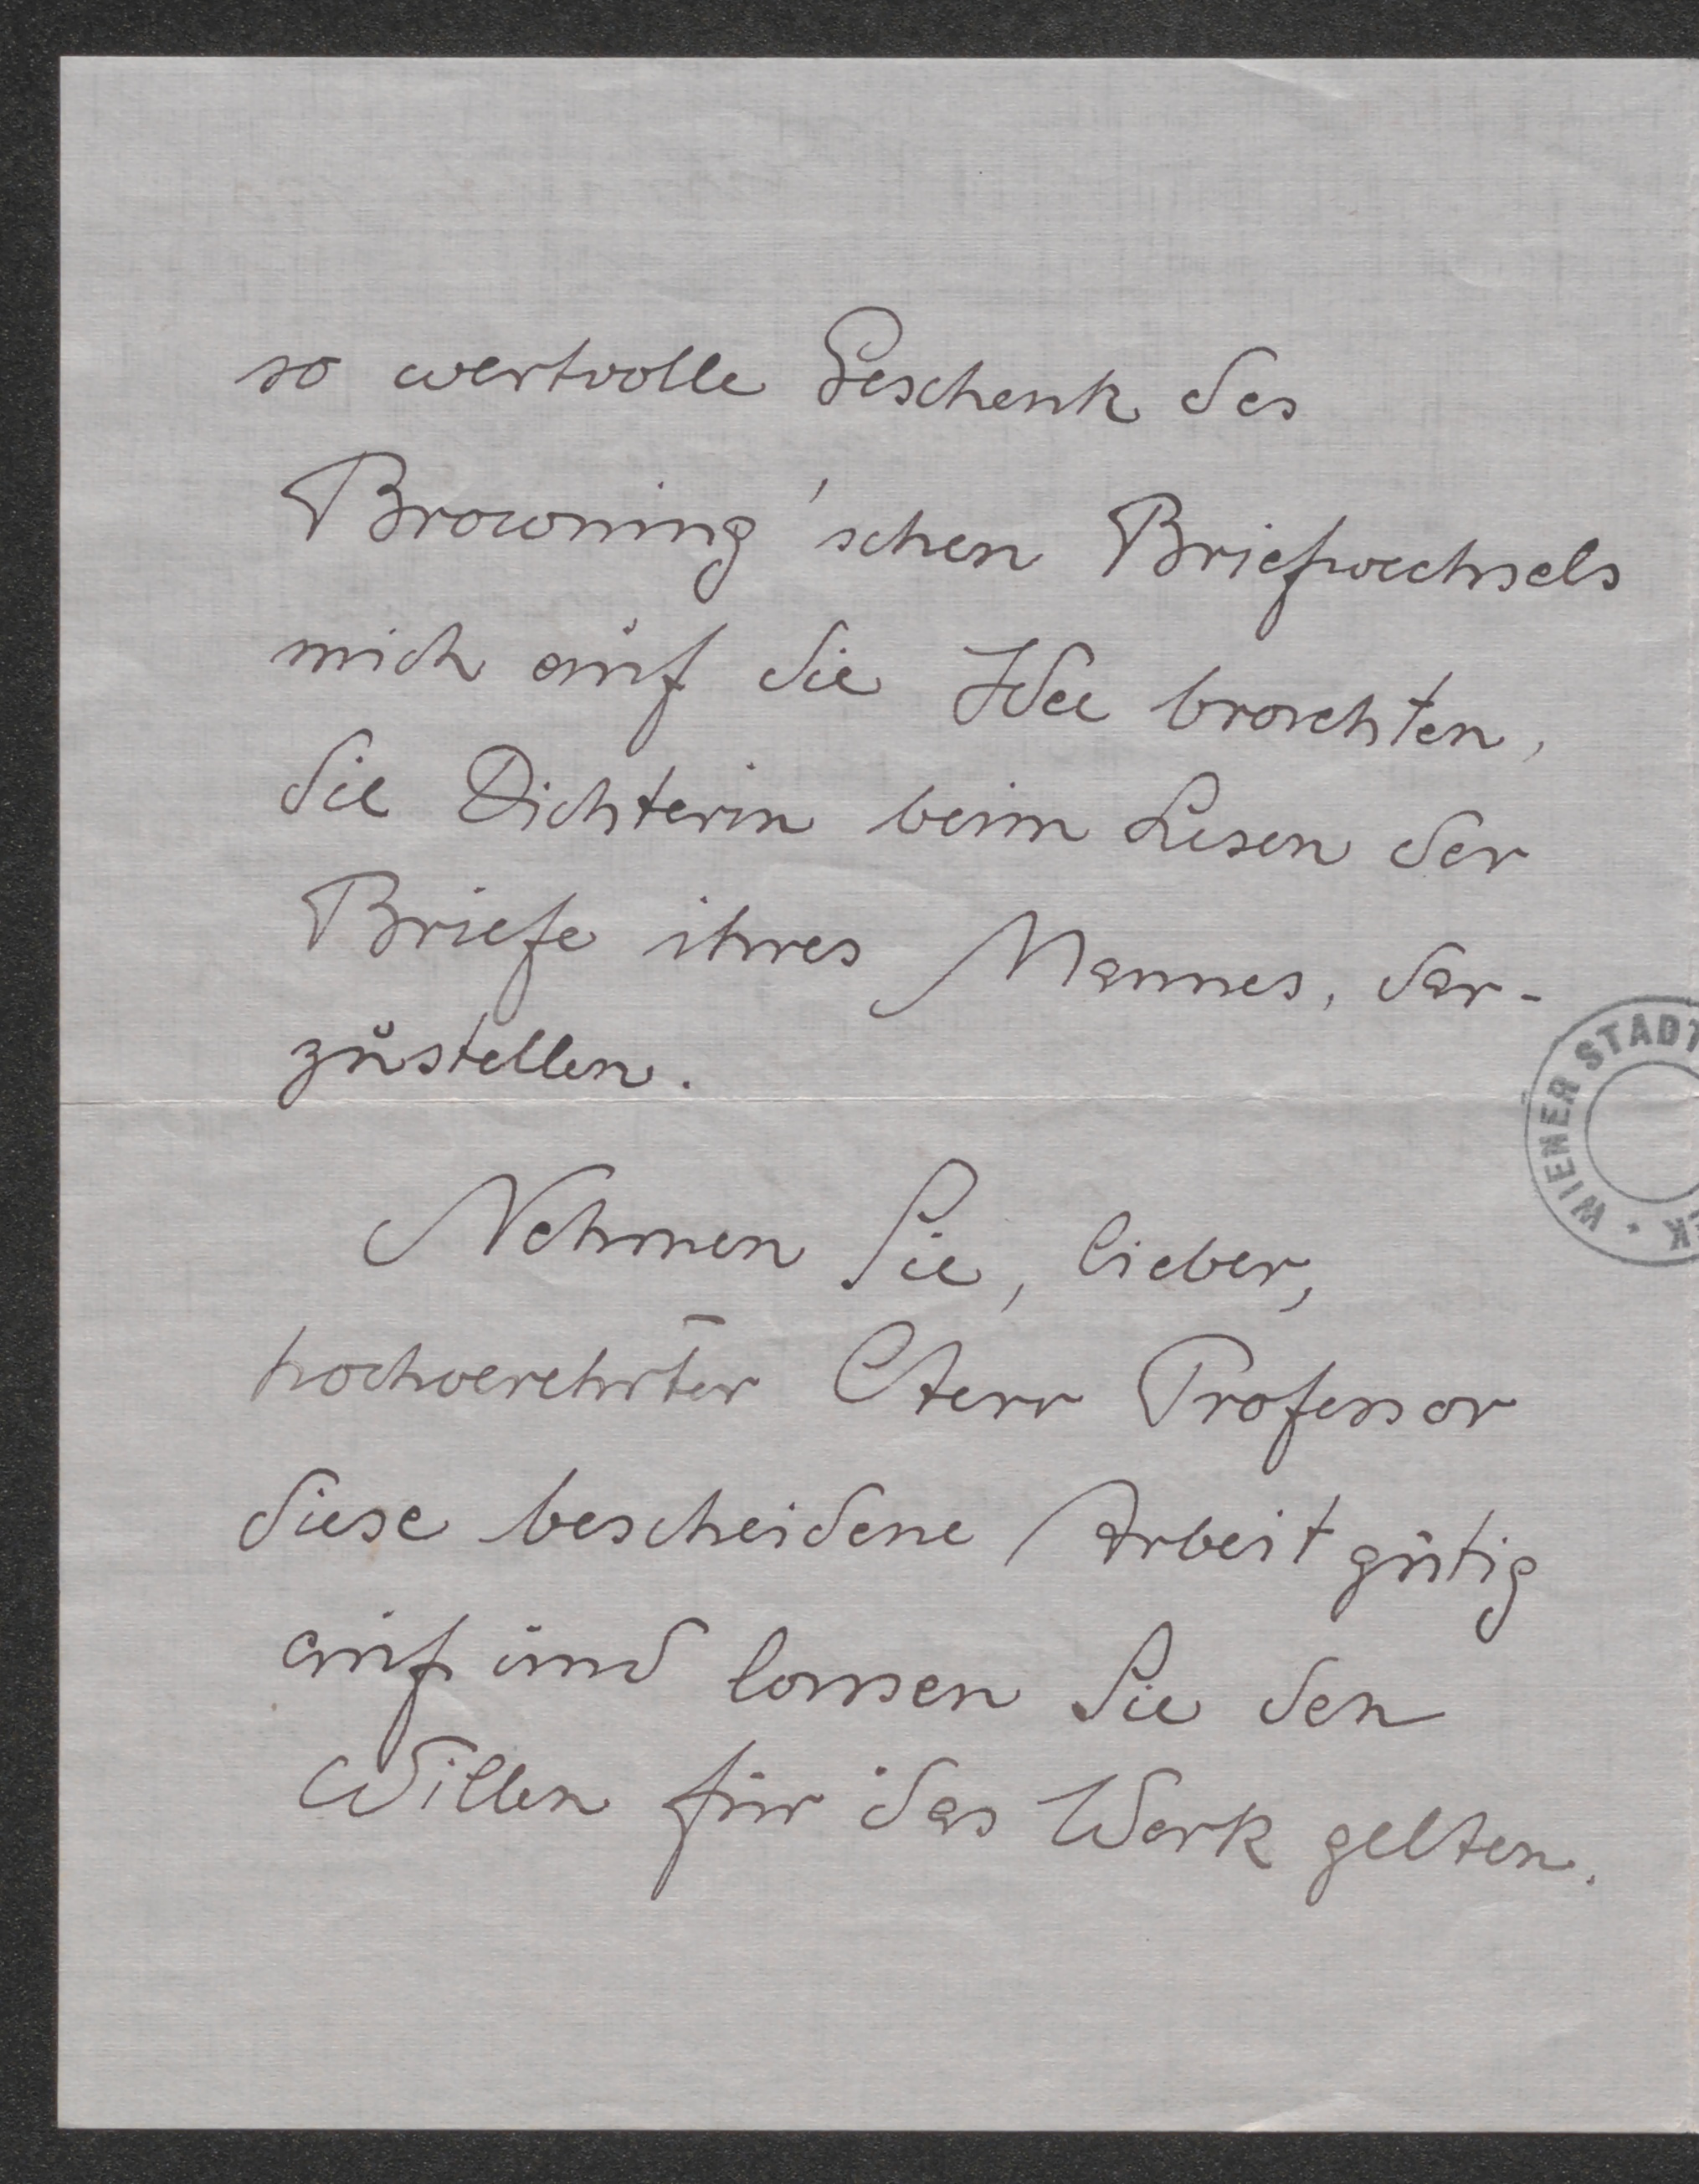 so wertvolle Geschenk des
Browning'schen Briefwechsels
mich auf die Idee brachten,
die Dichterin beim Lesen der
Briefe ihres Mannes, dar-
zustellen.
WIENER STADT
EK
Nehmen Sie, lieber,
hochverehrter Herr Professor
diese bescheidene Arbeit gütig
auf und lassen Sie den
Willen für das Werk gelten.